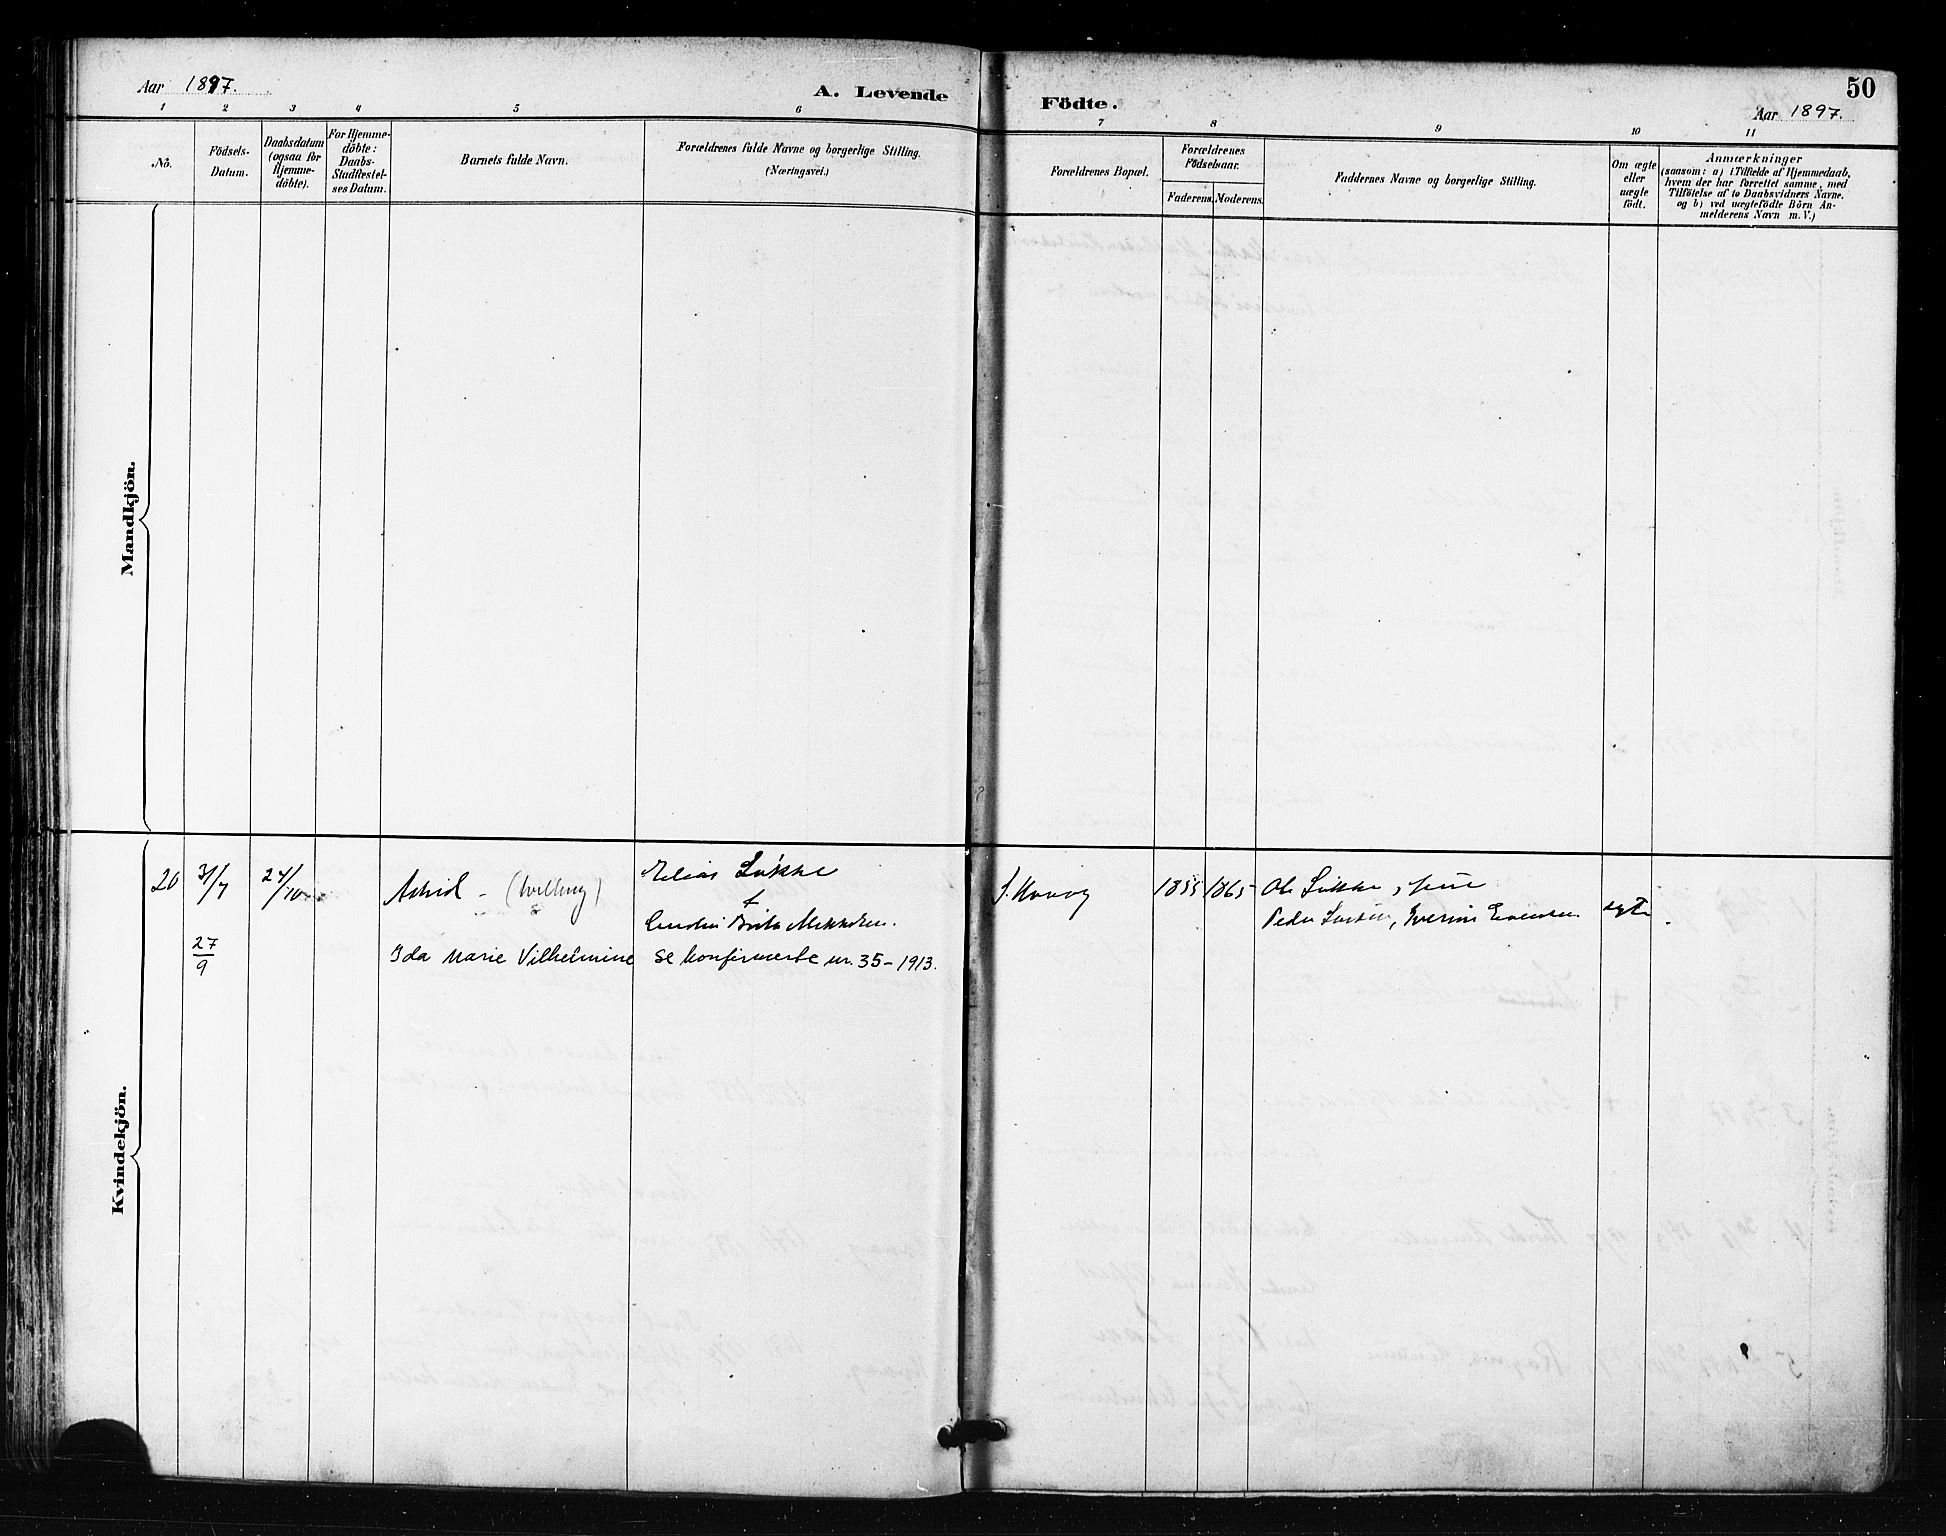 Aar 1897.
A. Levende
Födte.
50
Aar 1897.
1 2 3 4 5 6 7 8 9 10 11
No.
Födsels-
Datum.
Daabsdatum
(ogsaa for
Hjemme-
döbte).
For Hjemme-
döbte:
Daabs-
Stadfestel-
ses Datum.
Barnets fulde Navn.
Forældrenes fulde Navne og borgerlige Stilling.
(Næringsvei.)
Forældrenes Bopæl.
Forældrenes
Födselsaar.
Faderens. Moderens.
Faddernes Navne og borgerlige Stilling.
Om ægte
eller
uægte
födt.
Anmærkninger
(saasom: a) i Tilfælde af Hjemmedaab,
hvem der har forrettet samme, med
Tilföielse af to Daabsvidners Navne.
og b) ved uægtefödte Börn An-
melderens Navn m. V.)
Mandkjön.
Kvindekjön.
20 31/7 24/10 Astrid - (tvilling) Elias Løkke 1855 1865 Ole Løkke
Peder
ægte
27/9 Ida Marie Vilhelmine se konfirmerte nr. 35-1913.